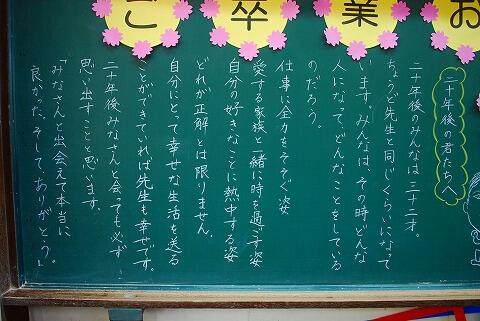 ご卒業お
二十年後の君たちへ
二十年後のみんなは三十二才。
ちょうど先生と同じくらいになって
います。みんなは、その時どんな
人になって、どんなことをしている
のだろう。
仕事に全力をそそぐ姿
愛する家族と一緒に時を過ごす姿
自分の好きなことに熱中する姿
どれが正解とは限りません。
自分にとって幸せな生活を送る
ことができていれば先生も幸せです。
二十年後みなさんと会っても必ず
思い出すことと思います。
「みなさんと出会えて本当に
良かった。そして、ありがとう。」